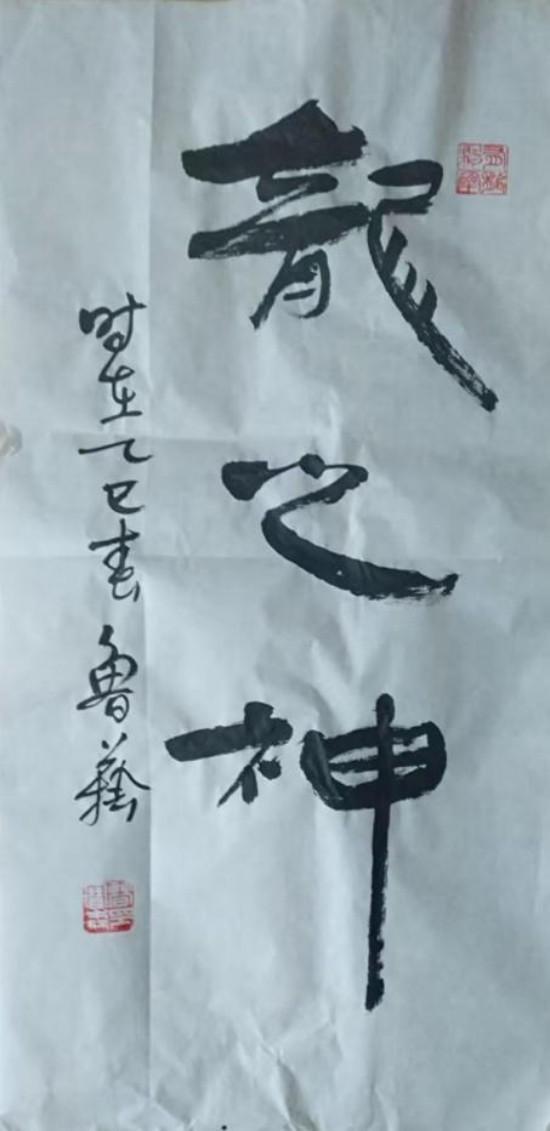 龍之神
时在乙巳春 魯藝